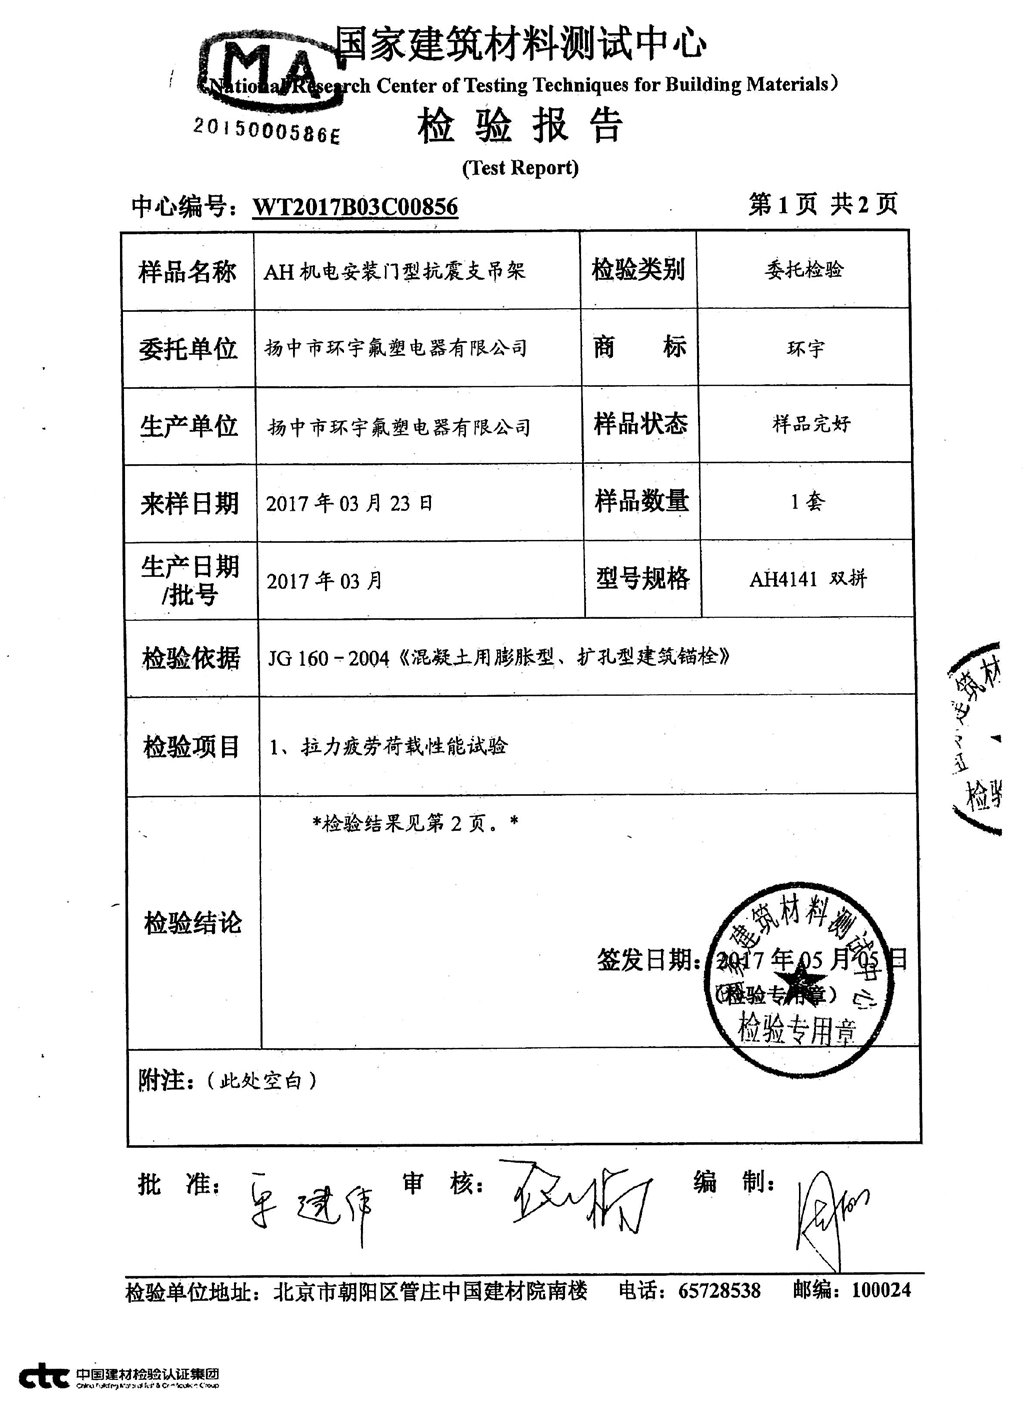 MA
国家建筑材料测试中心
(National Research Center of Testing Techniques for Building Materials)
2015000586E
检验报告
(Test Report)
中心编号：WT2017B03C00856
第1页 共2页
样品名称 AH机电安装门型抗震支吊架 检验类别 委托检验
委托单位 扬中市环宇氟塑电器有限公司 商标 环宇
生产单位 扬中市环宇氟塑电器有限公司 样品状态 样品完好
来样日期 2017年03月23日 样品数量 1套
生产日期
/批号
2017年03月 型号规格 AH4141 双拼
检验依据 JG 160-2004《混凝土用膨胀型、扩孔型建筑锚栓》
检验项目 1、拉力疲劳荷载性能试验
*检验结果见第2页。*
检验结论
签发日期：2017年05月05日
（检验专用章）
国家建筑材料测试中心
检验专用章
筑材
检验
附注：（此处空白）
批准： 审核： 编制：
检验单位地址：北京市朝阳区管庄中国建材院南楼 电话：65728538 邮编：100024
ctc 中国建材检验认证集团
China Building Material Test & Certification Group